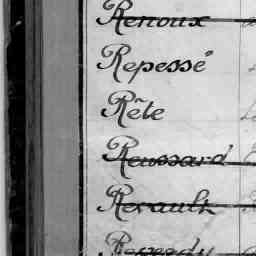 Renoux
Repessé
Rête
Reussard
Rerault